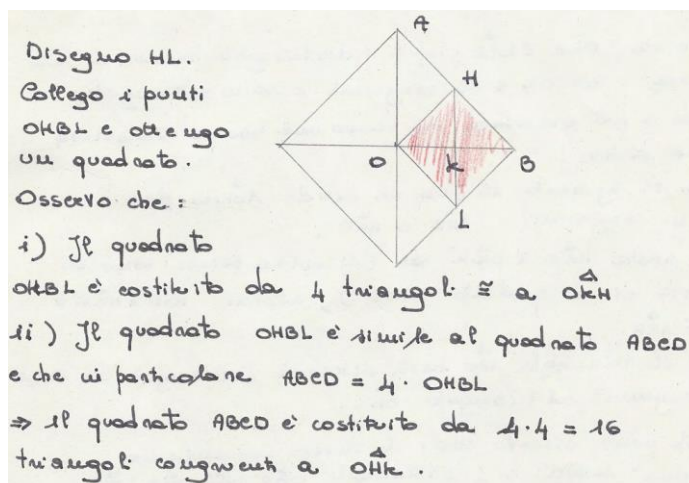 Disegno HL.
Collego i punti
OHBL e ottengo
un quadrato.
Osservo che:
i) Il quadrato
OHBL è costituito da 4 triangoli ≅ a OKH
ii) Il quadrato OHBL è simile al quadrato ABCD
e che in particolare ABCD = 4 · OHBL
⇒ il quadrato ABCD è costituito da 4·4 = 16
triangoli congruenti a OHK.
A
H
O
K
B
L